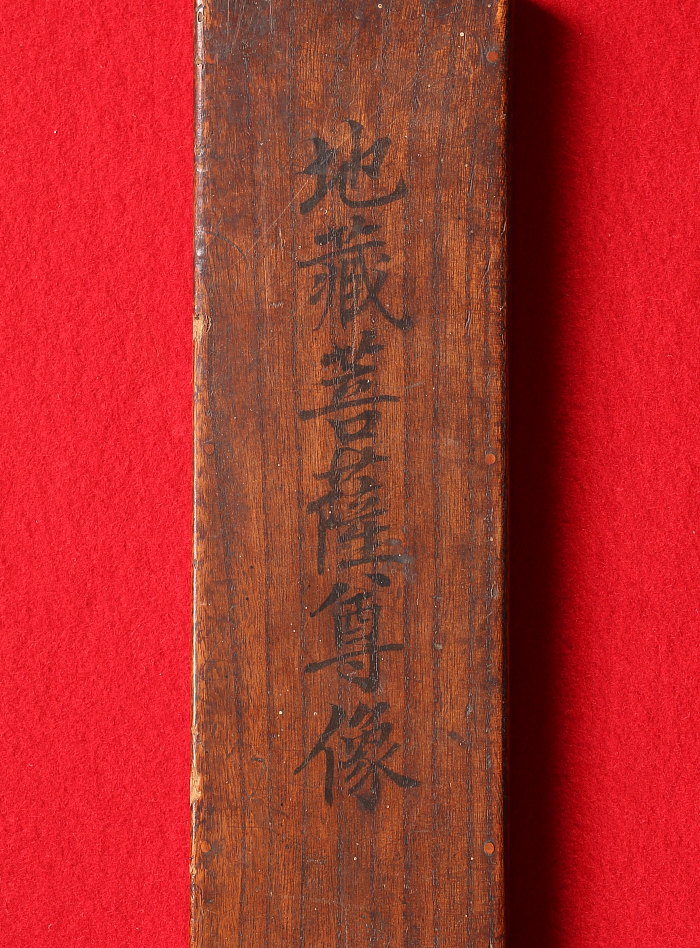 地藏菩薩尊像